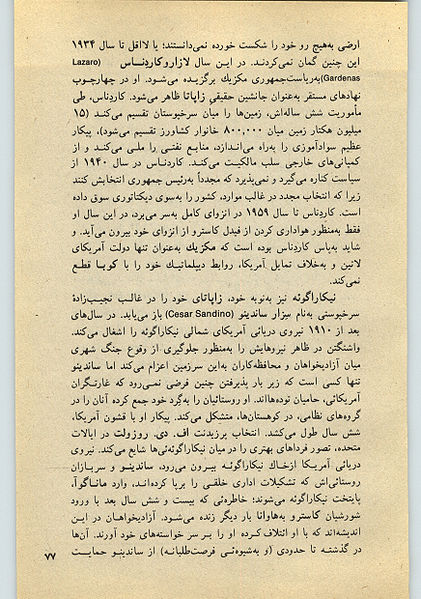 ارضی به‌هیچ رو خود را شکست خورده نمی‌دانستند؛ یا لااقل تا سال ۱۹۳۴
این چنین گمان نمی‌کردنـد. در ایـن سال لازارو کاردنـاس (Lazaro
Gardenas) به‌ریاست‌جمهوری مکزیك برگزیـده می‌شود. او در چهارچـوب
نهادهای مستقر به‌عنوان جانشین حقیقی زاپاتا ظاهر می‌شود. کاردناس، طی
مأموریت شش ساله‌اش، زمین‌ها را میان سرخپوستان تقسیم می‌کند (۱۵
میلیون هکتار زمین میان ۸۰۰,۰۰۰ خانوار کشاورز تقسیم می‌شود)، پیکار
عظیم سوادآموزی را به‌راه می‌انـدازد، منابـع نفتـی را ملـی می‌کنـد و از
کمپانی‌های خارجی سلب مالکیـت می‌کنـد. کاردنـاس در سال ۱۹۴۰ از
سیاست کناره می‌گیرد و نمی‌پذیرد که مجدداً به‌رئیس جمهوری انتخابش کنند
زیرا که انتخاب مجدد در غالب موارد، کشور را به‌سوی دیکتاتوری سوق داده
است. کاردناس تا سال ۱۹۵۹ در انزوای کامل به‌سر می‌برد، در این سال او
فقط به‌منظور هواداری کردن از فیدل کاسترو از انزوای خود بیرون می‌آید. و
شاید به‌پاس کاردناس بوده است که مکزیك به‌عنوان تنها دولت آمریکای
لاتین و به‌خلاف تمایل آمریکا، روابط دیپلماتیك خود را با کوبـا قطـع
نمی‌کند.
نیکاراگوئه نیز به‌نوبه خود، زاپاتای خود را در غالـب نجیـب‌زادهٔ
سرخپوستی به‌نام سزار ساندینو (Cesar Sandino) باز می‌یابد. در سال‌های
بعد از ۱۹۱۰ نیروی دریائی آمریکای شمالی نیکاراگوئه را اشغال می‌کند.
واشنگتن در ظاهر نیروهایش را به‌منظور جلوگیری از وقوع جنگ شهری
میان آزادیخواهان و محافظه‌کاران به‌این سرزمین اعزام می‌کند اما ساندینو
تنها کسی است که زیر بار پذیرفتن چنین فرضی نمی‌رود که غارتگران
آمریکائی، حامیان توده‌هااند. او روستائیان را به‌گرد خود جمع کرده آنان را در
گروه‌های نظامی، در کوهستان‌ها، متشکل می‌کند. پیکار او با قشون آمریکا،
شش سال طول می‌کشد. انتخاب پرزیدنت اف. دی. روزولت در ایالات
متحده، تصور فرداهای بهتری را در میان نیکاراگوئه‌ئی‌ها شایع می‌کند. نیروی
دریائی آمریـکا ازخـاك نیکاراگوئـه بیـرون می‌رود، ساندینـو و سربـازان
روستائی‌اش که تشکیلات اداری خلقـی را برپا کرده‌انـد، وارد ماناگـوآ،
پایتخت نیکاراگوئه می‌شوند؛ خاطره‌ئی که بیست و شش سال بعد با ورود
شورشیان کاسترو به‌هاوانا بار دیگر زنده می‌شود. آزادیخواهـان در ایـن
اندیشه‌اند که با او ائتلاف‌کرده او را بر سر خواسته‌های خود آورند. آن‌ها
در گذشته تا حدودی (و به‌شیوه‌ئی فرصت‌طلبانه) از ساندینو حمایت
۷۷